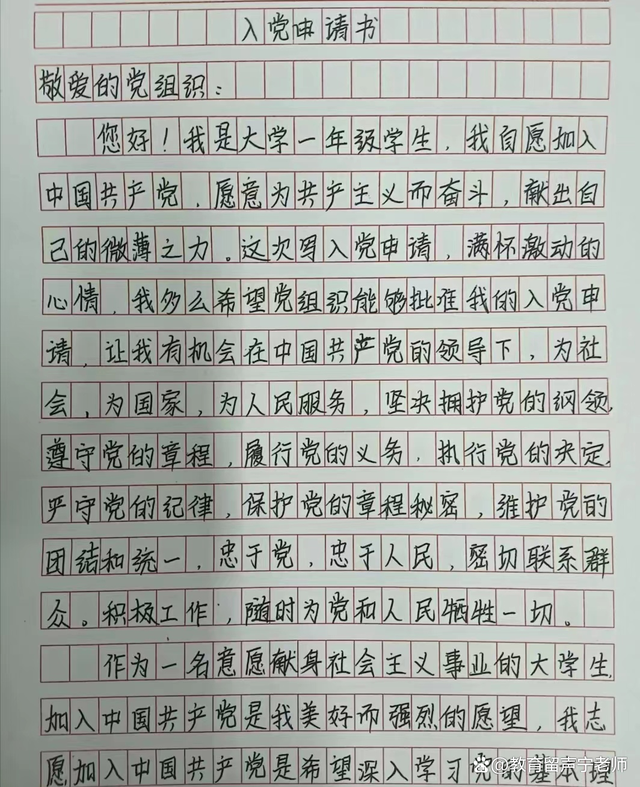 入党申请书
敬爱的党组织：
您好！我是大学一年级学生，我自愿加入
中国共产党，愿意为共产主义而奋斗，献出自
己的微薄之力。这次写入党申请，满怀激动的
心情，我多么希望党组织能够批准我的入党申
请，让我有机会在中国共产党的领导下，为社
会，为国家，为人民服务，坚决拥护党的纲领，
遵守党的章程，履行党的义务，执行党的决定，
严守党的纪律，保护党的章程秘密，维护党的
团结和统一，忠于党，忠于人民，密切联系群
众。积极工作，随时为党和人民牺牲一切。
作为一名意愿献身社会主义事业的大学生，
加入中国共产党是我美好而强烈的愿望，我志
愿加入中国共产党是希望深入学习党的基本理
@教育留声宇老师